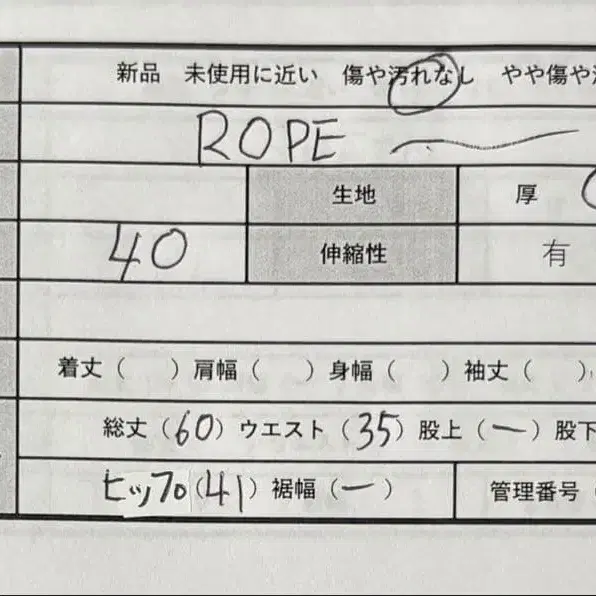 新品 未使用に近い 傷や汚れなし やや傷や
ROPE
生地 厚
40 伸縮性 有
着丈( )肩幅( )身幅( )袖丈( )
総丈(60)ウエスト(35)股上(ー)股下
ヒップ(41)裾幅(ー) 管理番号(